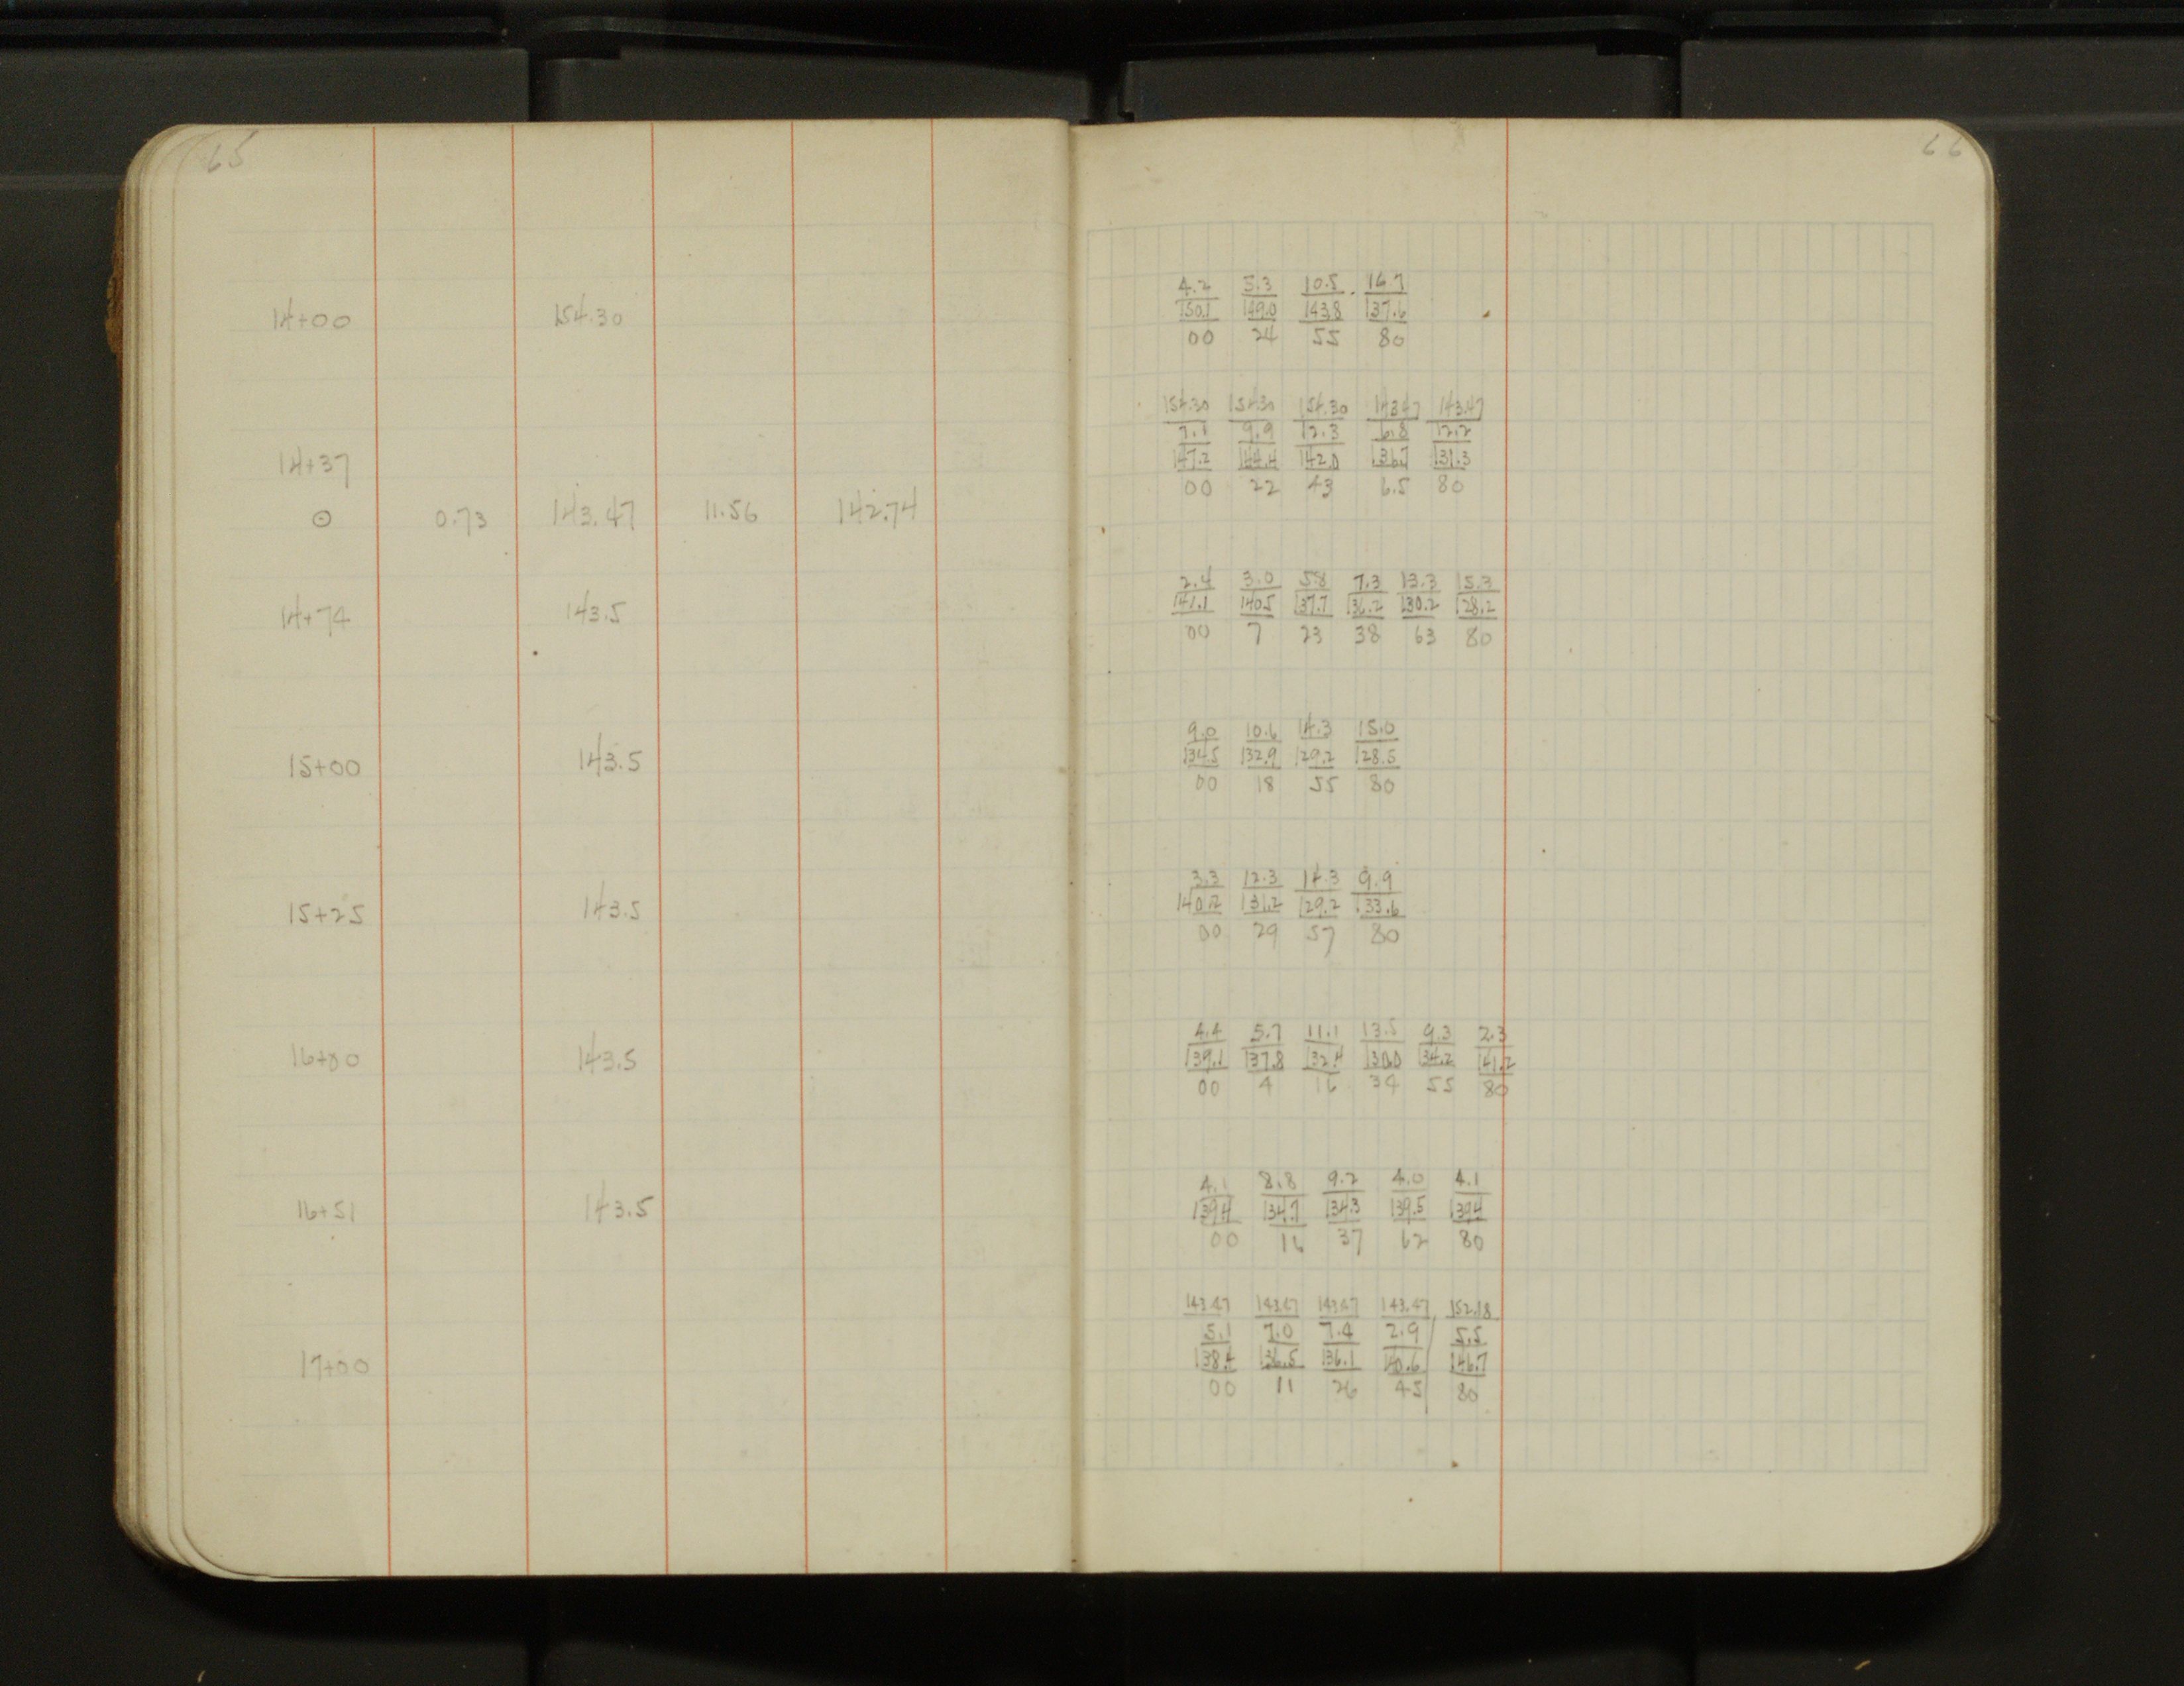 65
14+00 154.30
14+37
⊙ 0.73 143.47 11.56 142.74
14+74 143.5
15+00 143.5
15+25 143.5
16+00 143.5
16+51 143.5
17+00
66
4.2 5.3 10.5 16.7
150.1 149.0 143.8 137.6
00 24 55 80
154.30 154.30 154.30 143.47 143.47
7.1 9.9 12.3 6.8 12.2
147.2 144.4 142.0 136.7 131.3
00 22 43 65 80
2.4 3.0 5.8 7.3 13.3 15.3
141.1 140.5 137.7 136.2 130.2 128.2
00 7 23 38 63 80
9.0 10.6 14.3 15.0
134.5 132.9 129.2 128.5
00 18 55 80
3.3 12.3 14.3 9.9
140.2 131.2 129.2 133.6
00 29 57 80
4.4 5.7 11.1 13.5 9.3 2.3
139.1 137.8 132.4 130.0 134.2 141.2
00 4 16 34 55 80
4.1 8.8 9.2 4.0 4.1
139.4 134.7 134.3 139.5 139.4
00 16 37 62 80
143.47 143.47 143.47 143.47 152.18
5.1 7.0 7.4 2.9 5.5
138.4 136.5 136.1 140.6 146.7
00 11 26 45 80